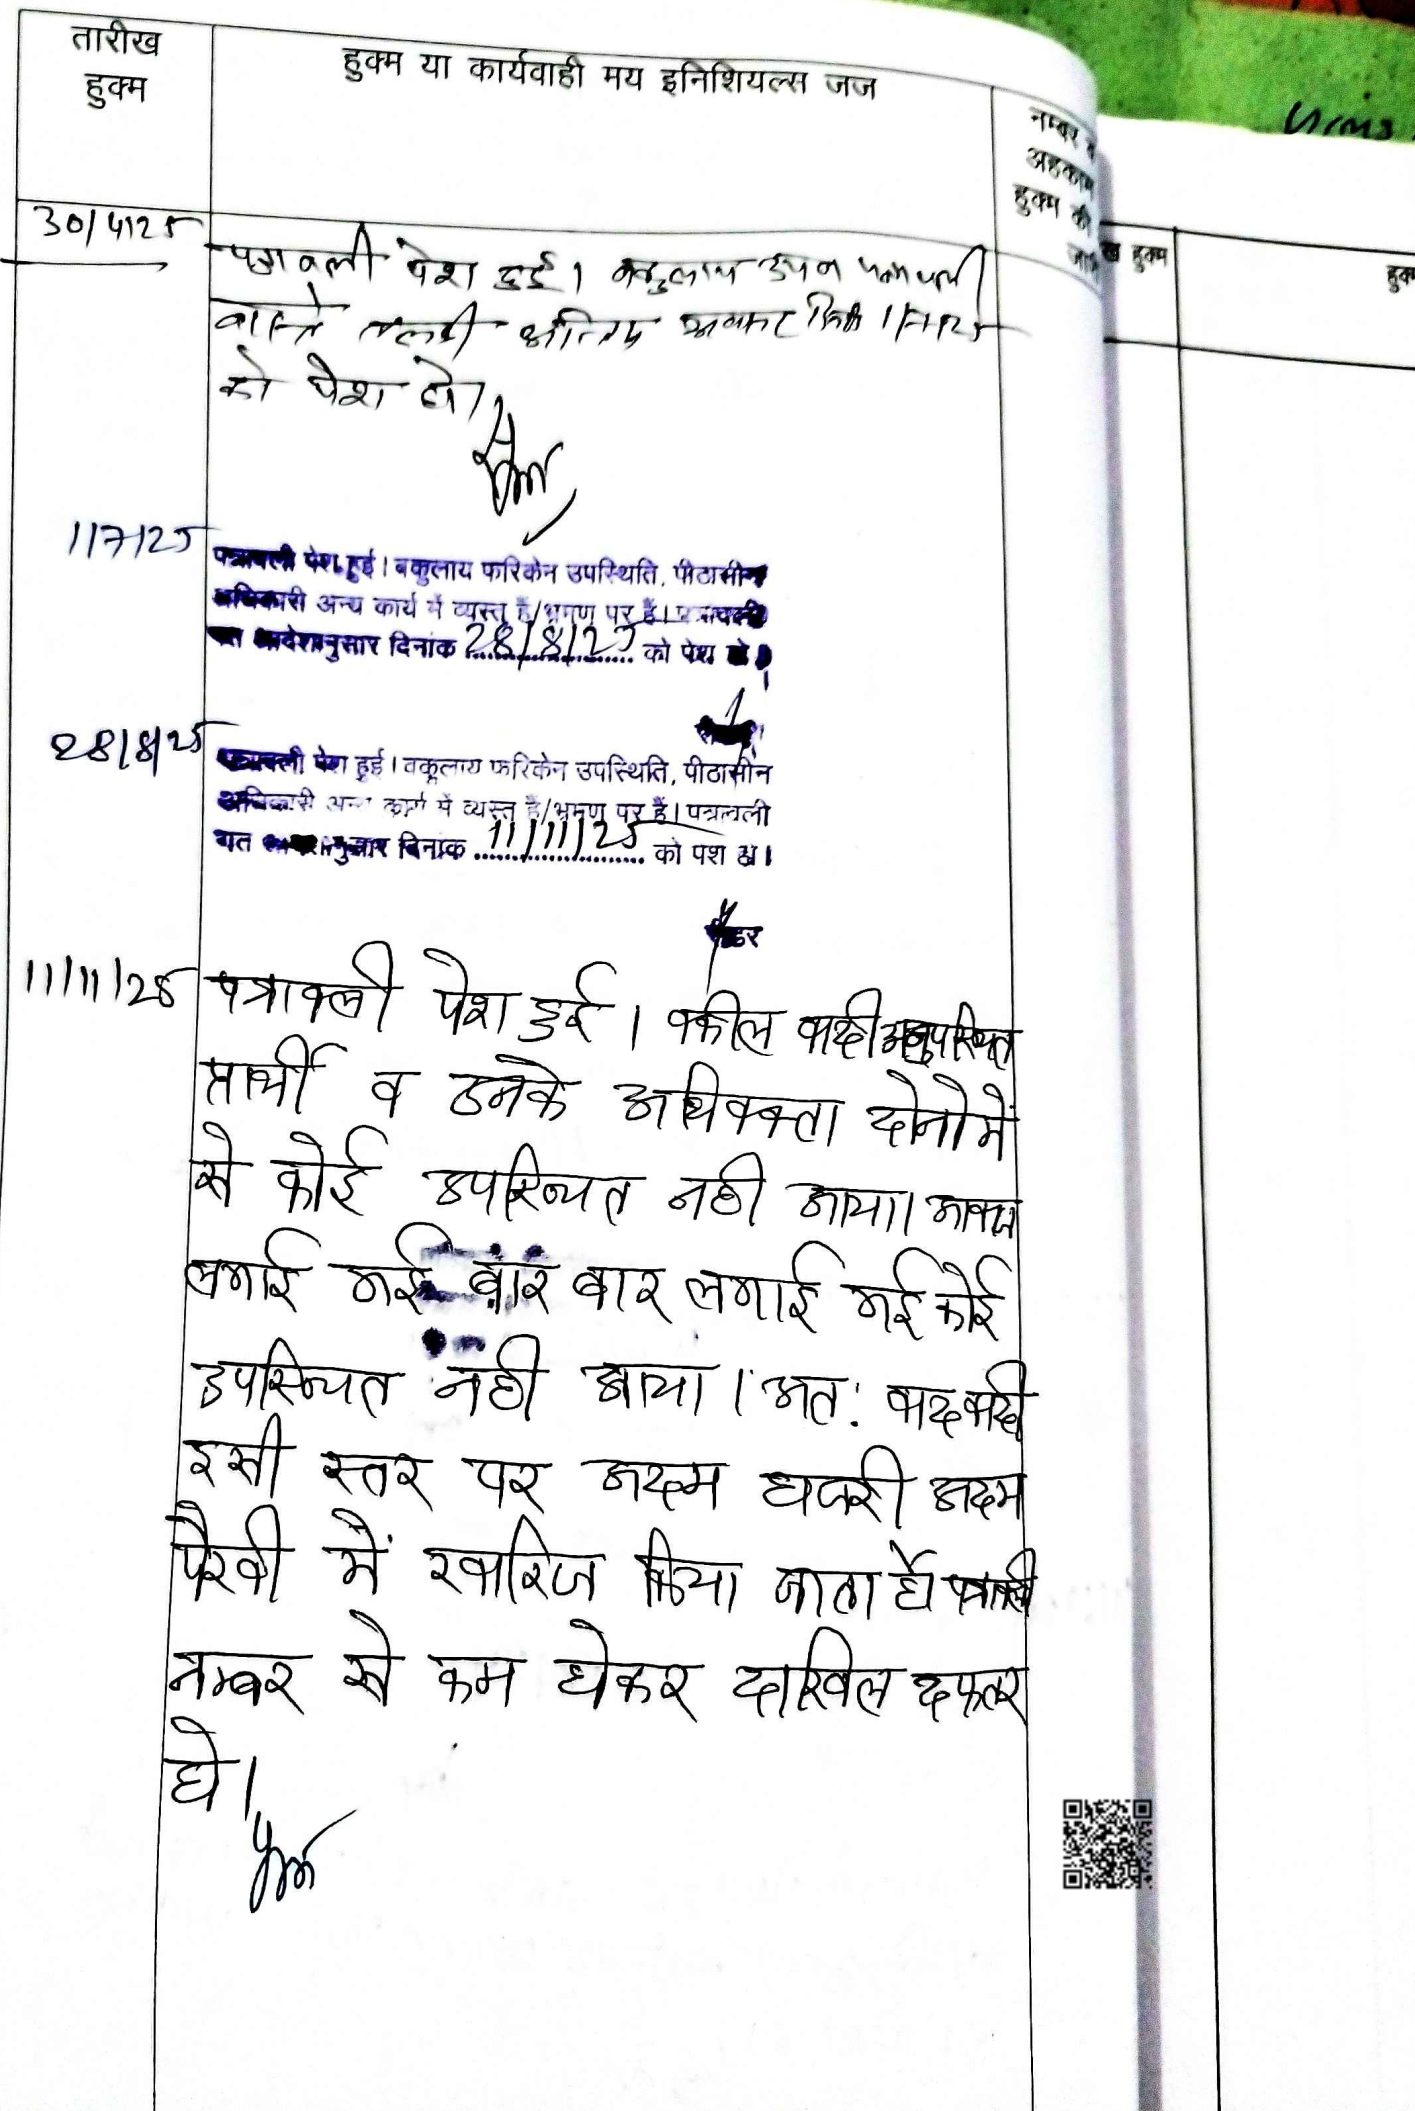 तारीख
हुक्म
हुक्म या कार्यवाही मय इनिशियल्स जज
नम्बर व
अहकाम
हुक्म की
हुक्म
30/4/25
पत्रावली पेश हुई। वकुलाय उप०
वास्ते तलबी अन्तिम अवसर 1/7/25
को पेश हो।
1/7/25
पत्रावली पेश हुई। वकुलाय फरिकेन उपस्थिति, पीठासीन
अधिकारी अन्य कार्य में व्यस्त है/भ्रमण पर है। पत्रावली
गत आदेशानुसार दिनांक 28/8/25 को पेश हो।
28/8/25
पत्रावली पेश हुई। वकूलाय फरिकेन उपस्थिति, पीठासीन
अधिकारी अन्य कार्य में व्यस्त है/भ्रमण पर है। पत्रावली
गत आदेशानुसार दिनांक 11/11/25 को पेश हो।
रीडर
11/11/25
पत्रावली पेश हुई। वकील वादी अनुपस्थित
प्रार्थी व उनके अधिवक्ता दोनो में
से कोई उपस्थित नही आया। आवाज
लगाई गई बार बार लगाई गई कोई
उपस्थित नही आया। अत: वाद वादी
इसी स्तर पर अदम हाजरी अदम
पैरवी में खारिज किया जाता है पत्रावली
नम्बर से कम होकर दाखिल दफ्तर
हो।